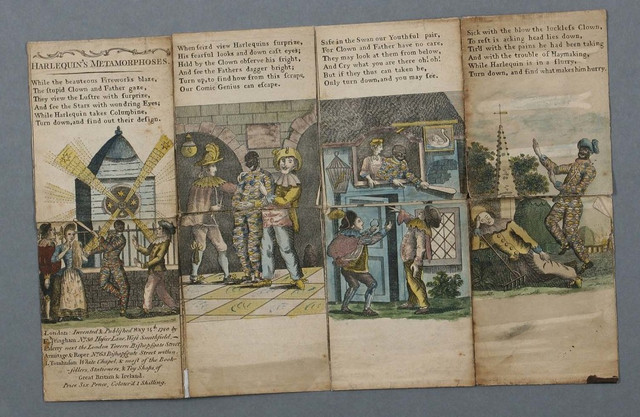 HARLEQUIN'S METAMORPHOSES.
While the beauteous Fireworks blaze,
The stupid Clown and Father gaze,
They view the Lustre with surprize,
And see the Stars with wondring Eyes;
While Harlequin takes Columbine,
Turn down, and find out their design.
London: Invented & Published May
near the London Tavern Bishopsgate Street
Armitage & Roper No 63 Bishopsgate Street within
White Chapel, & most of the Book-
sellers, Stationers, & Toy Shops of
Great Britain & Ireland.
Price Six Pence, Colour'd 1 Shilling.
When seized view Harlequins surprize,
His fearful looks and down cast eyes;
Held by the Clown observe his fright,
And see the Fathers dagger bright;
Turn up, to find how from this scrape,
Our Comic Genius can escape.
Safe in the Swan our Youthful pair,
For Clown and Father have no care,
They may look at them from below,
And Cry what you are there oh! oh!
But if they thus can taken be,
Only turn down, and you may see.
Sick with the blow the luckless Clown,
To rest is acking head lies down,
Tir'd with the pains he had been taking
And with the trouble of Haymaking,
While Harlequin is in a flurry,
Turn down, and find what makes him hurry.